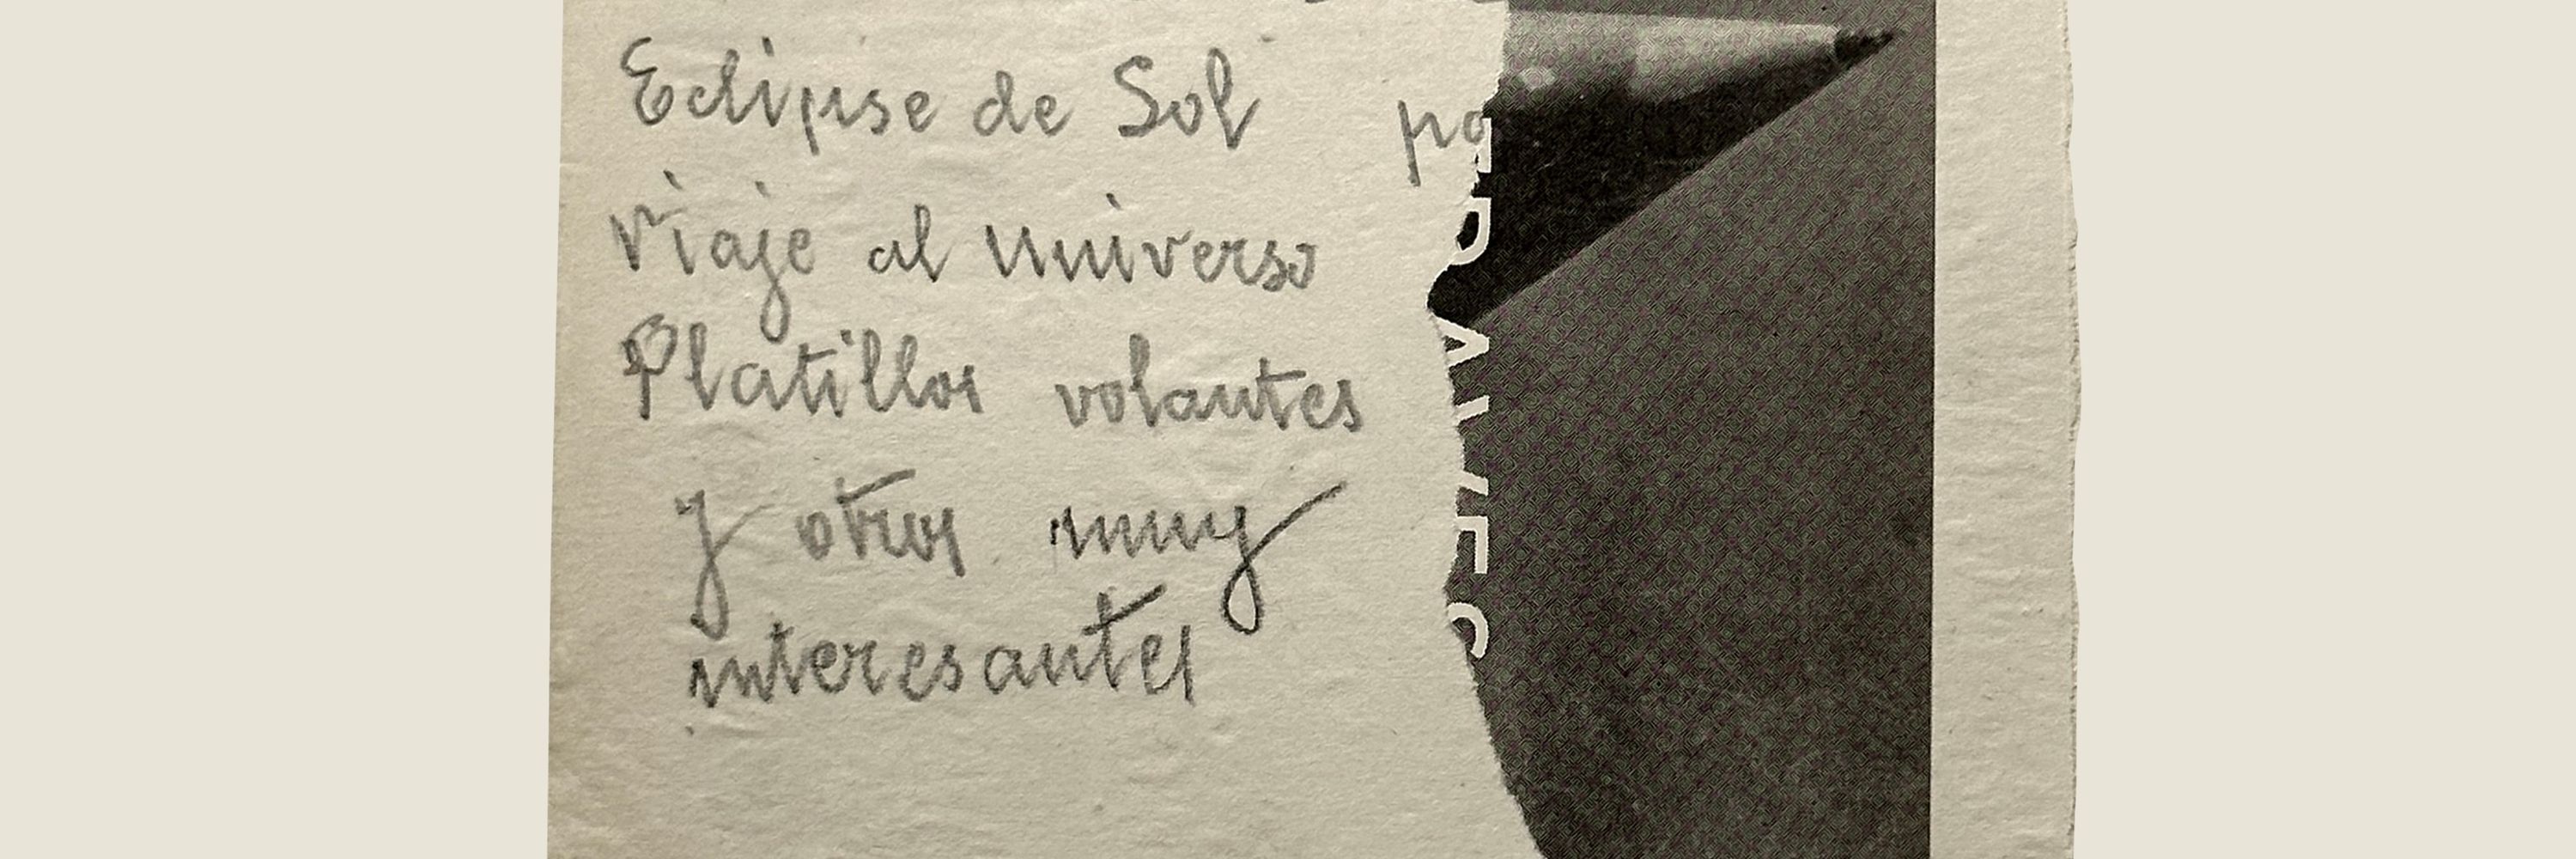 Eclipse de Sol
Viaje al Universo
Platillos volantes
y otros muy
interesantes